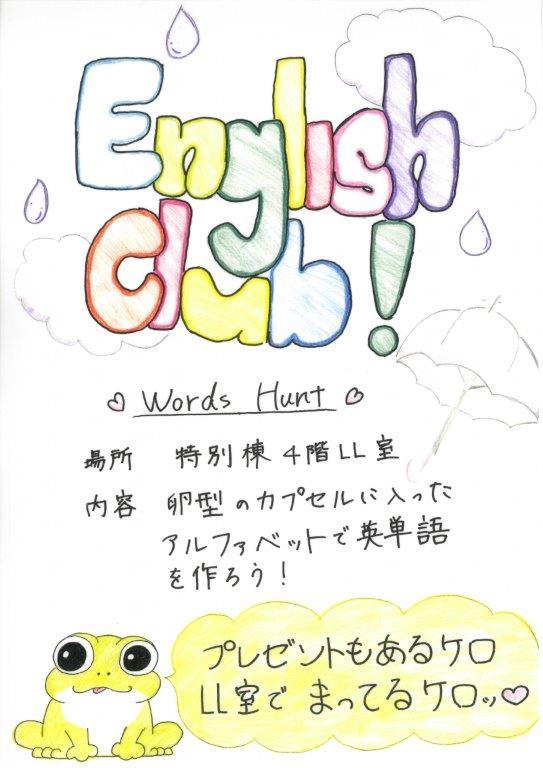 English
Club!
Words Hunt
場所 特別棟4階LL室
内容 卵型のカプセルに入った
アルファベットで英単語
を作ろう!
プレゼントもあるケロ
LL室で まってるケロッ♡